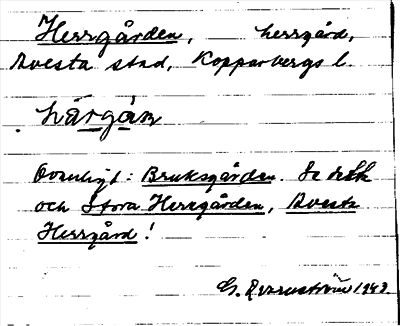 Herrgården, herrgård,
Avesta stad, Kopparbergs l.
härgån
Ovanligt: Bruksgården. Se detta
och Stora Herrgården, Avesta
Herrgård!
G. 1943.